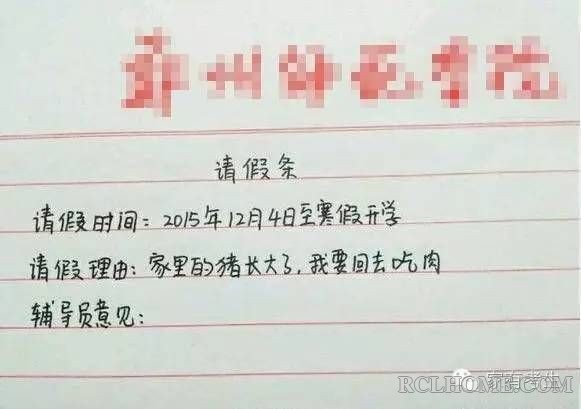 请假条
请假时间：2015年12月4日至寒假开学
请假理由：家里的猪长大了，我要回去吃肉
辅导员意见：
家有考生
RCLHOME.COM